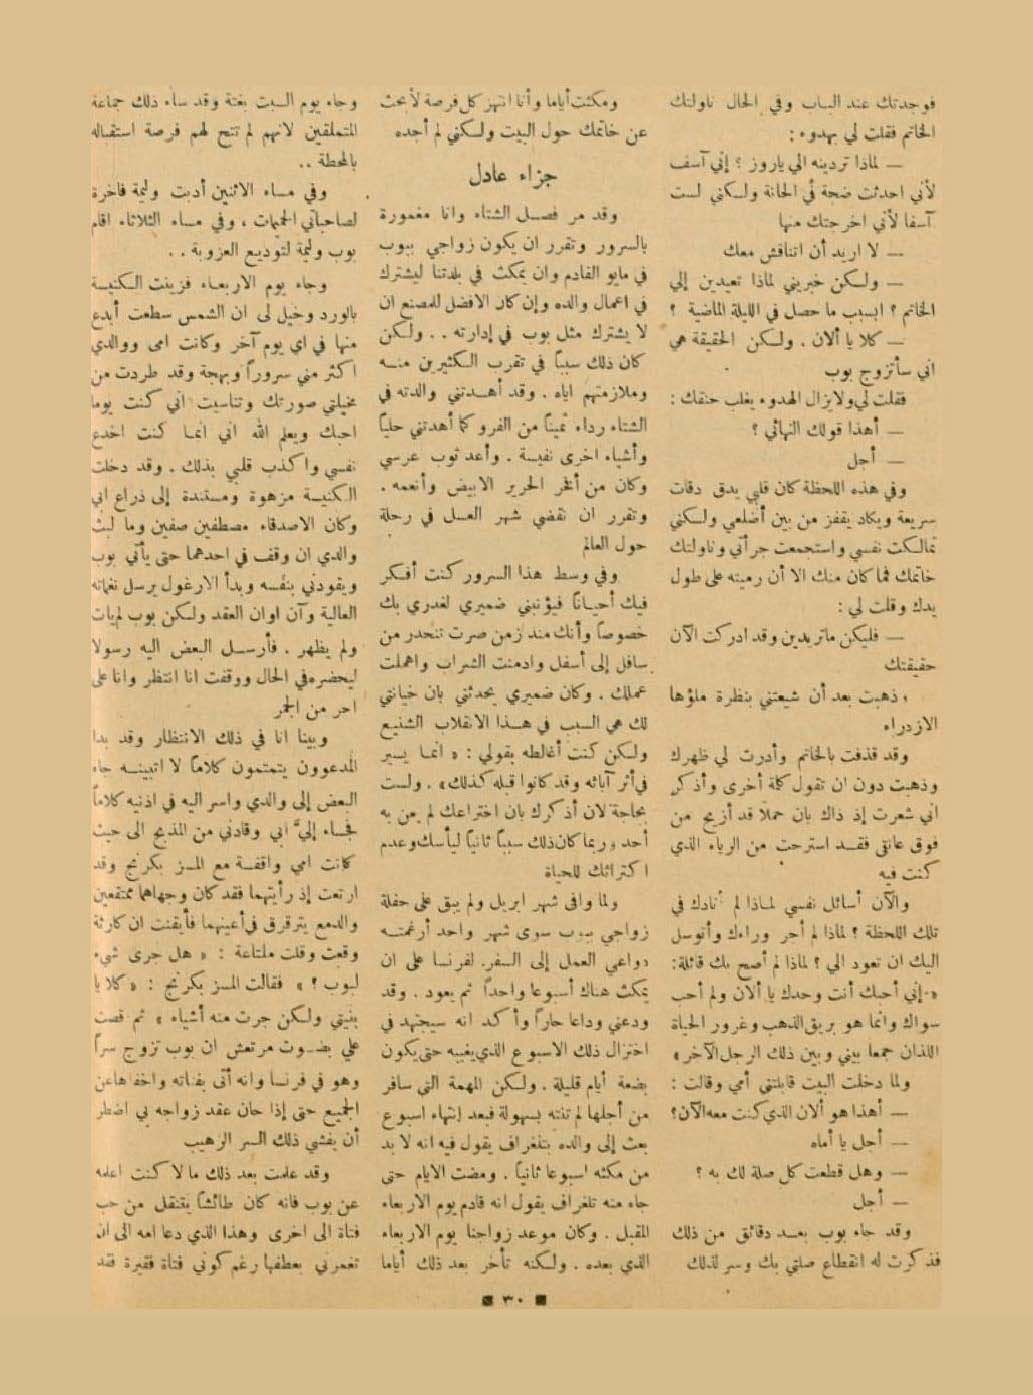 فوجدتك عند الباب وفي الحال ناولتك
الخاتم فقلت لي بهدوء :
— لماذا تردينه الي ياروز ؟ إني آسف
لأني احدثت ضجة في الحانة ولكني لست
آسفا لأني اخرجتك منها
— لا اريد أن اتناقش معك
— ولكن خبريني لماذا تعيدين إلي
الخاتم ؟ ابسبب ما حصل في الليلة الماضية ؟
— كلا يا ألان . ولكن الحقيقة هي
اني سأتزوج بوب
فقلت لي ولايزال الهدوء يغلب حنقك :
— أهذا قولك النهائي ؟
— أجل
وفي هذه اللحظة كان قلبي يدق دقات
سريعة ويكاد يقفز من بين أضلعي ولكني
تمالكت نفسي واستجمعت جرأتي وناولتك
خاتمك فما كان منك الا أن رميته على طول
يدك وقلت لي :
— فليكن ماتريدين وقد ادركت الآن
حقيقتك
وذهبت بعد أن شيعتني بنظرة ملؤها
الازدراء
وقد قذفت بالخاتم وأدرت لي ظهرك
وذهبت دون ان تقول كلمة أخرى وأذكر
اني شعرت إذ ذاك بان حملا قد أزيح من
فوق عاتقي فقد استرحت من الرياء الذي
كنت فيه
والآن أسائل نفسي لماذا لم أنادك في
تلك اللحظة ؟ لماذا لم أجر وراءك وأتوسل
اليك ان تعود الي ؟ لماذا لم أصح بك قائلة:
«إني أحبك أنت وحدك يا ألان ولم أحب
سواك وانما هو بريق الذهب وغرور الحياة
اللذان جمعا بيني وبين ذلك الرجل الآخر»
ولما دخلت البيت قابلتني أمي وقالت :
— أهذا هو ألان الذي كنت معه الآن؟
— أجل يا أماه
— وهل قطعت كل صلة لك به ؟
— أجل
وقد جاء بوب بعد دقائق من ذلك
فذكرت له انقطاع صلتي بك وسر لذلك
ومكثت أياما وأنا انتهز كل فرصة لأبحث
عن خاتمك حول البيت ولكني لم أجده
جزاء عادل
وقد مر فصل الشتاء وانا مغمورة
بالسرور وتقرر ان يكون زواجي ببوب
في مايو القادم وان يمكث في بلدتنا ليشترك
في اعمال والده وإن كان الافضل للمصنع ان
لا يشترك مثل بوب في إدارته .. ولكن
كان ذلك سببا في تقرب الكثيرين منه
وملازمتهم اياه . وقد أهدتني والدته في
الشتاء رداء ثمينا من الفرو كما أهدتني حليا
وأشياء اخرى نفيسة . وأعد ثوب عرسي
وكان من أفخر الحرير الابيض وأنعمه .
وتقرر ان نقضي شهر العسل في رحلة
حول العالم
وفي وسط هذا السرور كنت أفكر
فيك أحيانا فيؤنبني ضميري لغدري بك
خصوصا وأنك منذ زمن صرت تنحدر من
سافل إلى أسفل وادمنت الشراب واهملت
عملك . وكان ضميري يحدثني بان خيانتي
لك هي السبب في هذا الانقلاب الشنيع
ولكن كنت أغالطه بقولي : « انما يسير
في أثر آبائه وقد كانوا قبله كذلك» . ولست
بحاجة لان أذكرك بان اختراعك لم يعن به
أحد وربما كان ذلك سببا ثانيا ليأسك وعدم
اكتراثك للحياة
ولما وافى شهر ابريل ولم يبق على حفلة
زواجي ببوب سوى شهر واحد أرغمته
دواعي العمل إلى السفر لفرنسا على ان
يمكث هناك أسبوعا واحدا ثم يعود . وقد
ودعني وداعا حارا وأكد انه سيجتهد في
اختزال ذلك الاسبوع الذي يغيبه حتى يكون
بضعة أيام قليلة . ولكن المهمة التي سافر
من أجلها لم تنته بسهولة فبعد إنتهاء اسبوع
بعث إلى والده بتلغراف يقول فيه انه لا بد
من مكثه اسبوعا ثانيا . ومضت الايام حتى
جاء منه تلغراف يقول انه قادم يوم الاربعاء
المقبل . وكان موعد زواجنا يوم الاربعاء
الذي بعده . ولكنه تأخر بعد ذلك أياما
وجاء يوم السبت بغتة وقد ساء ذلك جماعة
المتملقين لانهم لم تتح لهم فرصة استقباله
بالمحطة ..
وفي مساء الاثنين أدبت وليمة فاخرة
لصاحباتي الحميمات ، وفي مساء الثلاثاء اقام
بوب وليمة لتوديع العزوبة ..
وجاء يوم الاربعاء فزينت الكنيسة
بالورد وخيل لى ان الشمس سطعت أبدع
منها في اي يوم آخر وكانت امى ووالدي
اكثر مني سرورا وبهجة وقد طردت من
مخيلتي صورتك وتناسيت اني كنت يوما
احبك ويعلم الله اني انما كنت اخدع
نفسي واكذب قلبي بذلك . وقد دخلت
الكنيسة مزهوة ومستندة إلى ذراع ابي
وكان الاصدقاء مصطفين صفين وما لبث
والدي ان وقف في احدهما حتى يأتي بوب
ويقودني بنفسه وبدأ الارغول يرسل نغماته
العالية وآن اوان العقد ولكن بوب لم يات
ولم يظهر . فأرسل البعض اليه رسولا
ليحضره في الحال ووقفت انا انتظر وانا على
احر من الجمر
وبينا انا في ذلك الانتظار وقد بدا
المدعوون يتمتمون كلاما لا اتبينه جاء
البعض إلى والدي واسر اليه في اذنيه كلاما
فجاء إليّ ابي وقادني من المذبح الى حيث
كانت امي واقفة مع المسز بكرنج وقد
ارتعت إذ رأيتهما فقد كان وجهاهما ممتقعين
والدمع يترقرق في أعينهما فأيقنت ان كارثة
وقعت وقلت ملتاعة : « هل جرى شيء
لبوب ؟ » فقالت المسز بكرنج : «كلا يا
بنيتي ولكن جرت منه أشياء » ثم قصت
علي بصوت مرتعش ان بوب تزوج سراً
وهو في فرنسا وانه أتى بفتاته واخفاها عن
الجميع حتى إذا حان عقد زواجه بي اضطر
أن يفشي ذلك السر الرهيب
وقد علمت بعد ذلك ما لا كنت اعلمه
عن بوب فانه كان طائشا يتنقل من حب
فتاة الى اخرى وهذا الذي دعا امه الى ان
تغمرني بعطفها رغم كوني فتاة فقيرة فقد
■ ٣٠ ■